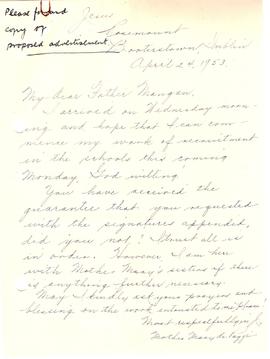 Please find
copy of
proposed advertisement
Jesus
Rosemount
Booterstown, Dublin
April 24, 1953.
My dear Father Mangan,
I arrived on Wednesday morn-
ing and hope that I can com-
mence my work of recruitment
in the schools this coming
Monday, God willing.
You have received the
guarantee that you requested
with the signatures appended,
did you not? I trust all is
in order. However I am here
with Mother Mary's sisters if there
is anything further necessary.
May I kindly ask your prayers and
blessing on the work entrusted to me
Most respectfully in J.
Mother Mary de